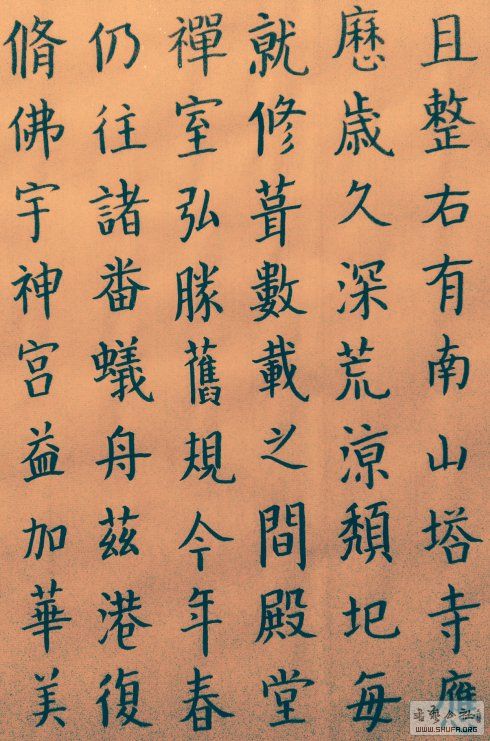 且整右有南山塔寺應
歷歳久深荒涼頽圮每
就修葺數載之間殿堂
禪室弘勝舊規今年春
仍往諸番蟻舟茲港復
脩佛宇神宫益加華美
WWW.SHUFA.ORG